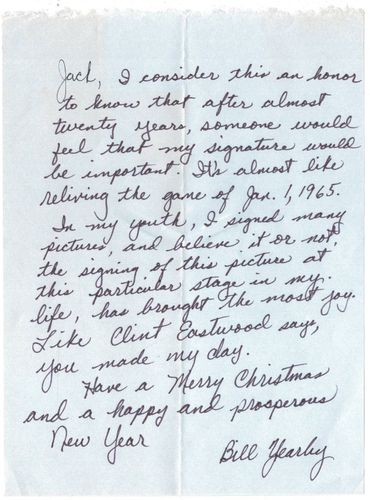 Jack, I consider this an honor
to know that after almost
twenty years, someone would
feel that my signature would
be important. It's almost like
reliving the game of Jan. 1, 1965.
In my youth, I signed many
pictures, and believe it or not,
the signing of this picture at
this particular stage in my
life, has brought the most joy.
Like Clint Eastwood says,
you made my day.
Have a Merry Christmas
and a happy and prosperous
New Year
Bill Yearby